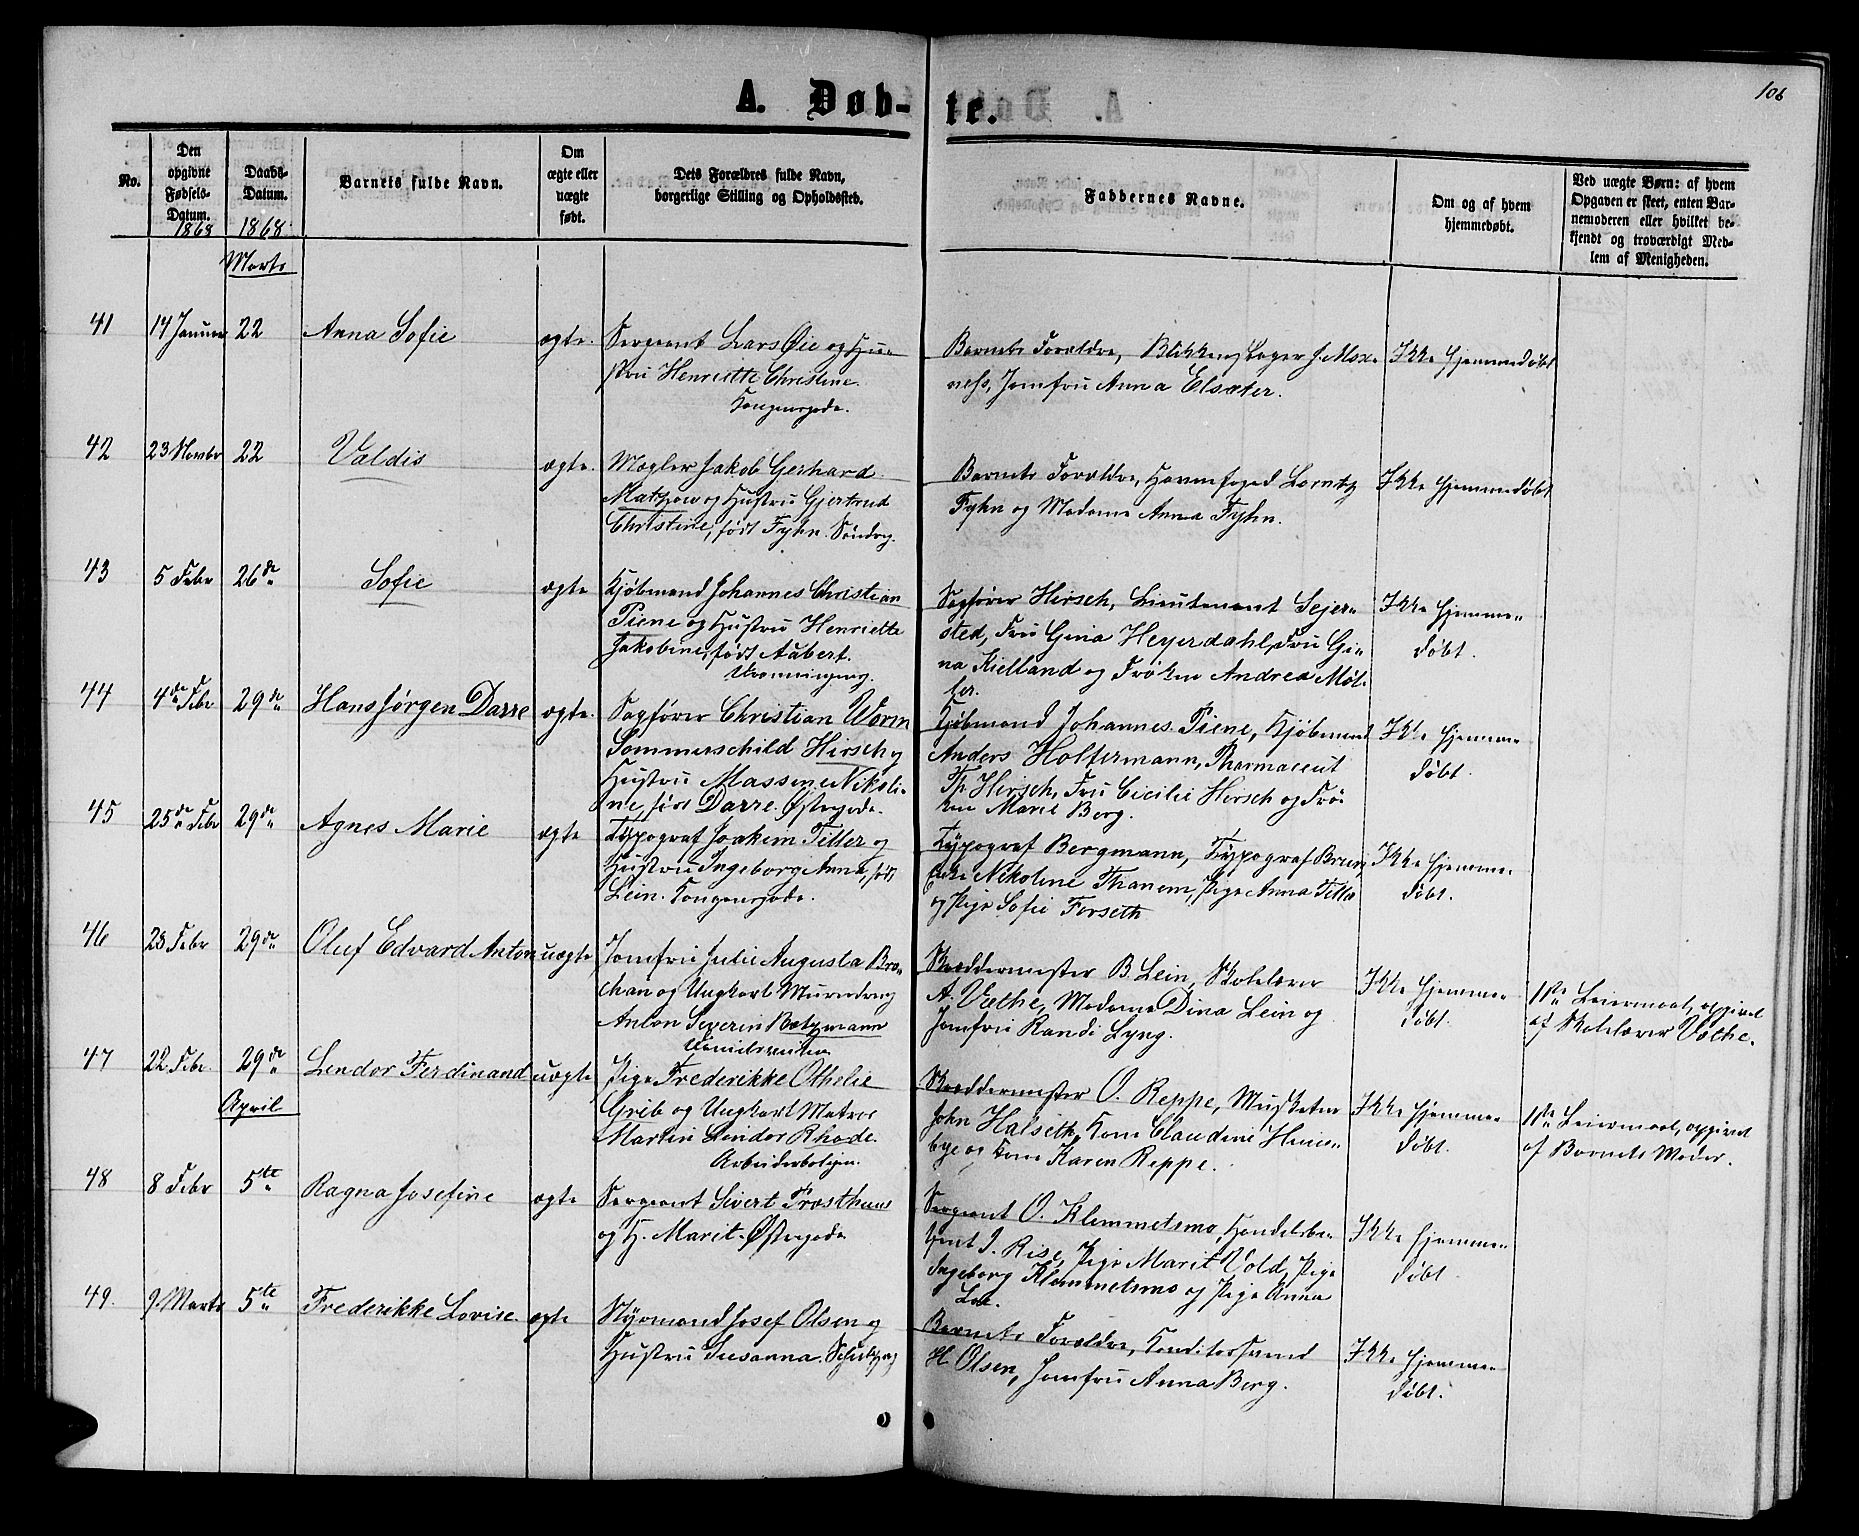 A. Døb-te.
106
No.
Den opgivne Fødsels-Datum.
Daabs-Datum.
Barnets fulde Navn.
Om ægte eller uægte født.
Dets Forældres fulde Navn, borgerlige Stilling og Opholdssted.
Faddernes Navne.
Om og af hvem hjemmedøbt.
Ved uægte Børn: af hvem Opgaven er skeet, enten Barnemoderen eller hvilket bekjendt og troværdigt Medlem af Menigheden.
1868 1868
Marts
41 14 Januar 22 Anna Sofie ægte.
Sergeant Lars Øie og Hu-
stru Henriette Christine.
Kongensgade.
Barnets Forældre, Blikkenslager J. Mox-
ness, Jomfru Anna Elsæter.
Ikke hjemmedøbt
42 23 Novbr 22 Valdis ægte.
Mægler Jakob Gerhard
Matzow og Hustru Gjertrud
Christine, født Fyhn. Søndreg.
Barnets Forældre, Havnefoged Lorntz
Fyhn og Madame Anna Fyhn.
Ikke hjemmedøbt
43 5 Febr 26de Sofie ægte
Kjøbmand Johannes Christian
Piene og Hustru Henriette
Jakobine, født Aubert.
Sagfører Hirsch, Lieutenant Sejer-
sted, Fru Gina Heyerdahl, Fru Gi-
na Kielland og Frøken Andrea Møl-
ler.
Ikke hjemme-
døbt.
44 4de Febr 29de Hans Jørgen Darre ægte.
Sagfører Christian Worm
Sommerschild Hirsch og
Hustru Massine Nikoli-
ne, født Darre. Østergade.
Kjøbmand Johannes Piene, Kjøbmand
Anders Holtermann, Pharmaceut
Th. Hirsch, Fru Cicilie Hirsch og Frø-
ken Marie Berg.
Ikke hjemme-
døbt.
45 25de Febr 29de Agnes Marie ægte
Typograf Joakim Tiller og
Hustru Ingeborg Anna, født
Lein. Kongensgade.
Typograf Bergmann, Typograf Brun,
Enke Nikoline Thanem, Pige Anna Tiller
og Pige Sofie Forseth
Ikke hjemme-
døbt.
46 23 Febr 29de Oluf Edvard Anton uægte
Jomfru Julie Augusta Bro-
chan og Ungkarl Murerdreng
Anton Severin Betzmann
Skræddermester B. Lein, Skolelærer
A. Væthe, Madame Dina Lein og
Jomfru Randi Lyng.
Ikke hjemme-
døbt.
1ste Leiermaal, opgivet
af Skolelærer Væthe.
47 22 Febr. 29de Lendor Ferdinand uægte
Pige Frederikke Othelie
Grib og Ungkarl Matros
Martin Lendor Rhode.
Arbeiderboligen.
Skræddermester O. Reppe, Musketer
John Halseth, Kone Claudine
og Kone Karen Reppe.
Ikke hjemme-
døbt.
1ste Leiermaal, opgivet
af Barnets Moder.
April
48 8 Febr 5te Ragna Josefine ægte
Sergeant Sivert Frosthuus
og H. Marit. Østergade
Sergeant O. Klemmetsmo, Handelsbe-
tjent J. Rise, Pige Marit Vold, Pige
Ingeborg Klemmetsmo og Pige Anna
Ikke hjemme-
døbt.
49. 9. Marts 5te Frederikke Lovise. ægte
Styrmand Josef Olsen og
Hustru Susanna.
Barnets Forældre, Konditorsvend
H. Olsen, Jomfru Anna Berg.
Ikke hjemme-
døbt.